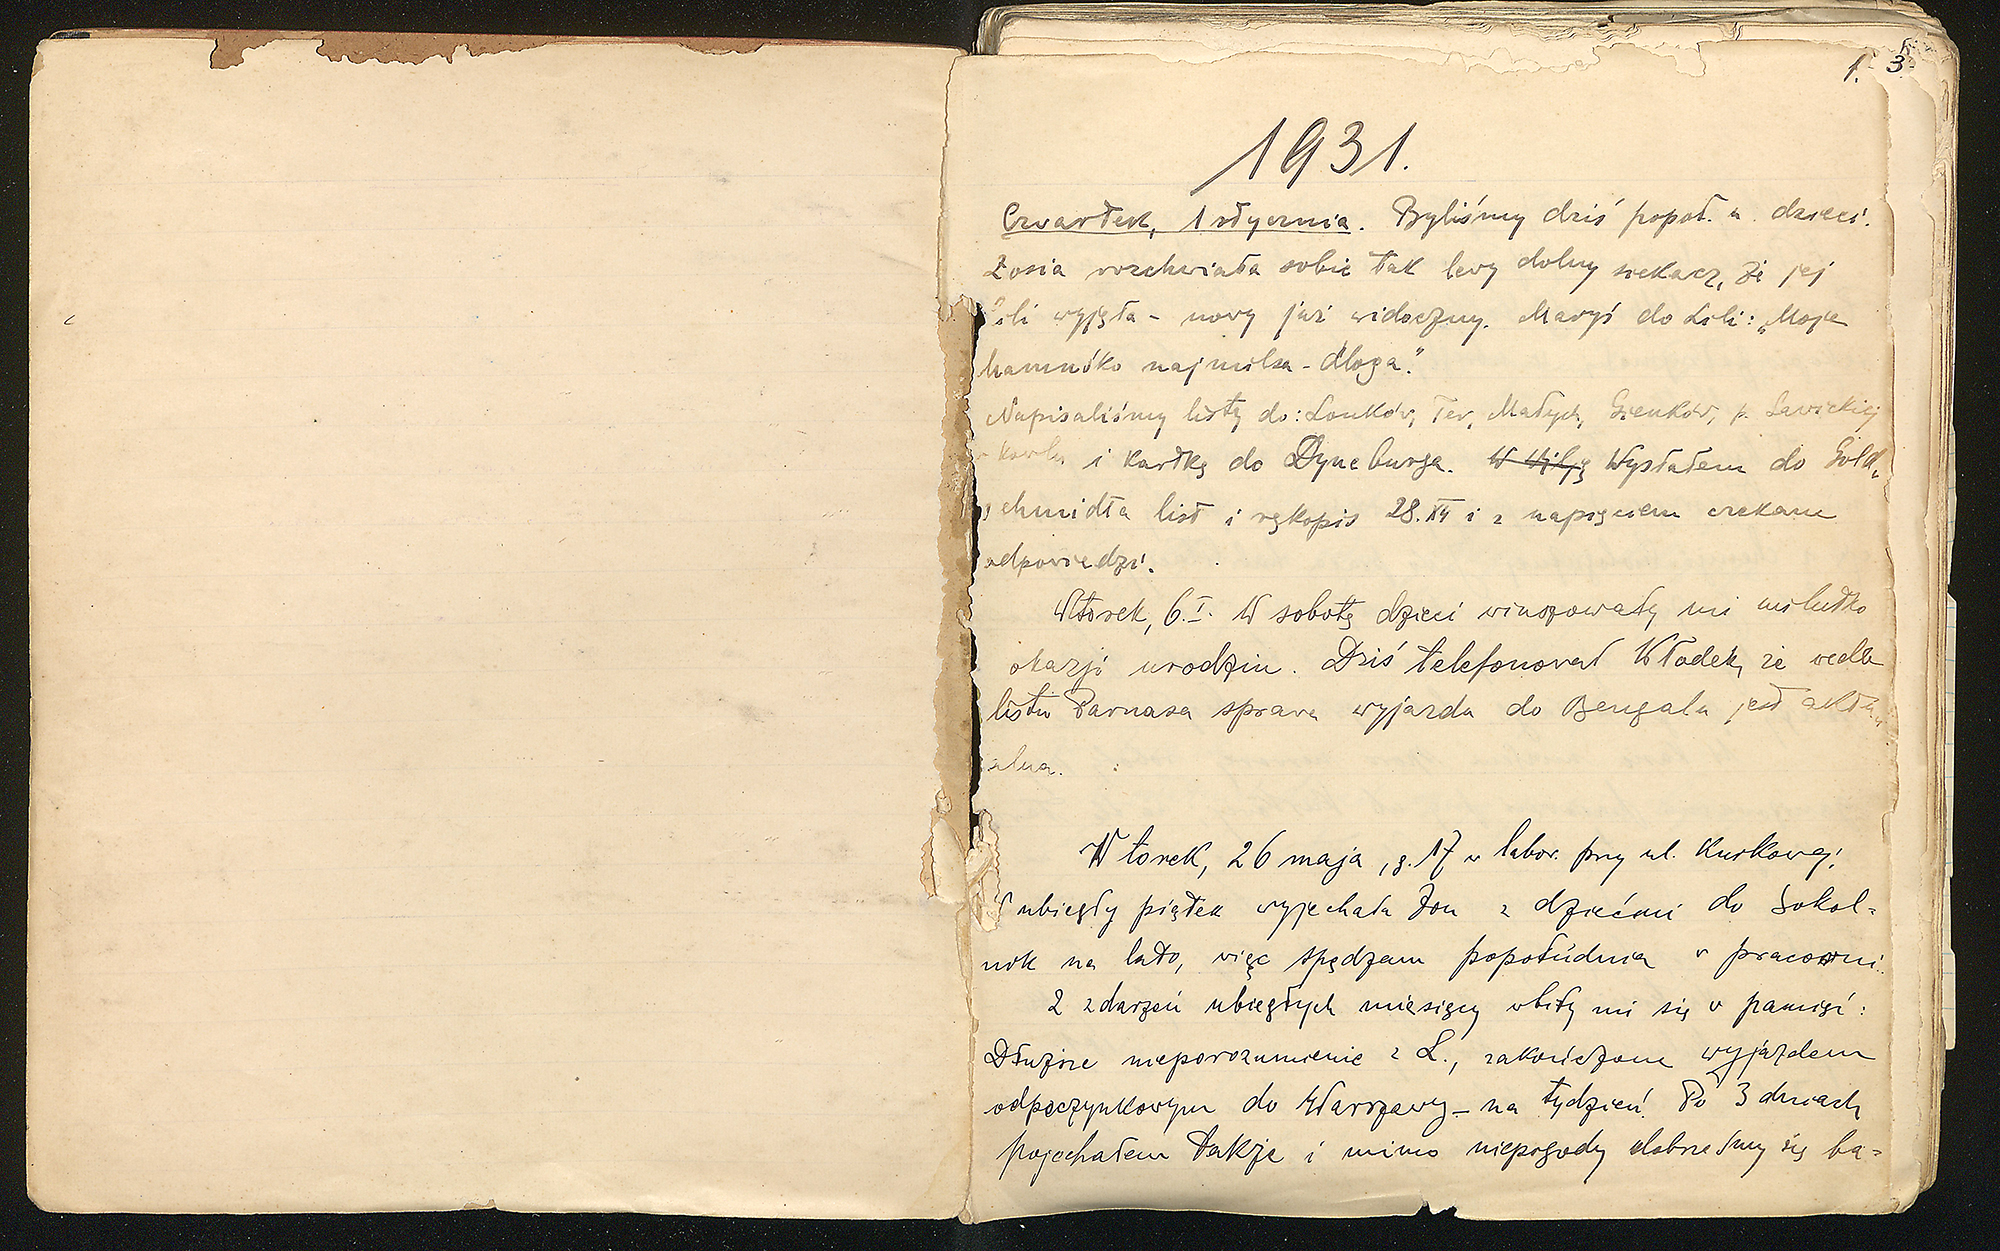 1. 3.
1931.
Czwartek, 1 stycznia. Byliśmy dziś popoł. u dzieci.
Zosia rozchwiała sobie tak lewy dolny siekacz, że jej
Lili wyjęła – nowy już widoczny. Maryś do Lili: „Moja
mamuśko najmilsa – dloga."
Napisaliśmy listy do: Lonków, Ter, Małych, Gienków, p. Sawickiej
i kartkę do Dyneburga. Wysłałem do Gold-
schmidta list i rękopis 28.XII i z napięciem czekam
odpowiedzi.
Wtorek, 6.I. W sobotę dzieci winszowały mi milutko
okazji urodzin. Dziś telefonował Włodek, że wedle
listu Parnasa sprawa wyjazdu do Bengalu jest aktu-
alna.
Wtorek, 26 maja, g. 17 w labor. przy ul. Kurkowej.
W ubiegły piątek wyjechała Żon z dziećmi do Sokol-
nik na lato, więc spędzam popołudnia w pracowni.
Z zdarzeń ubiegłych miesięcy wbiły mi się w pamięć:
Dłuższe nieporozumienie z L., zakończone wyjazdem
odpoczynkowym do Warszawy – na tydzień. Po 3 dniach
pojechałem także i mimo niepogody dobrześmy się ba-